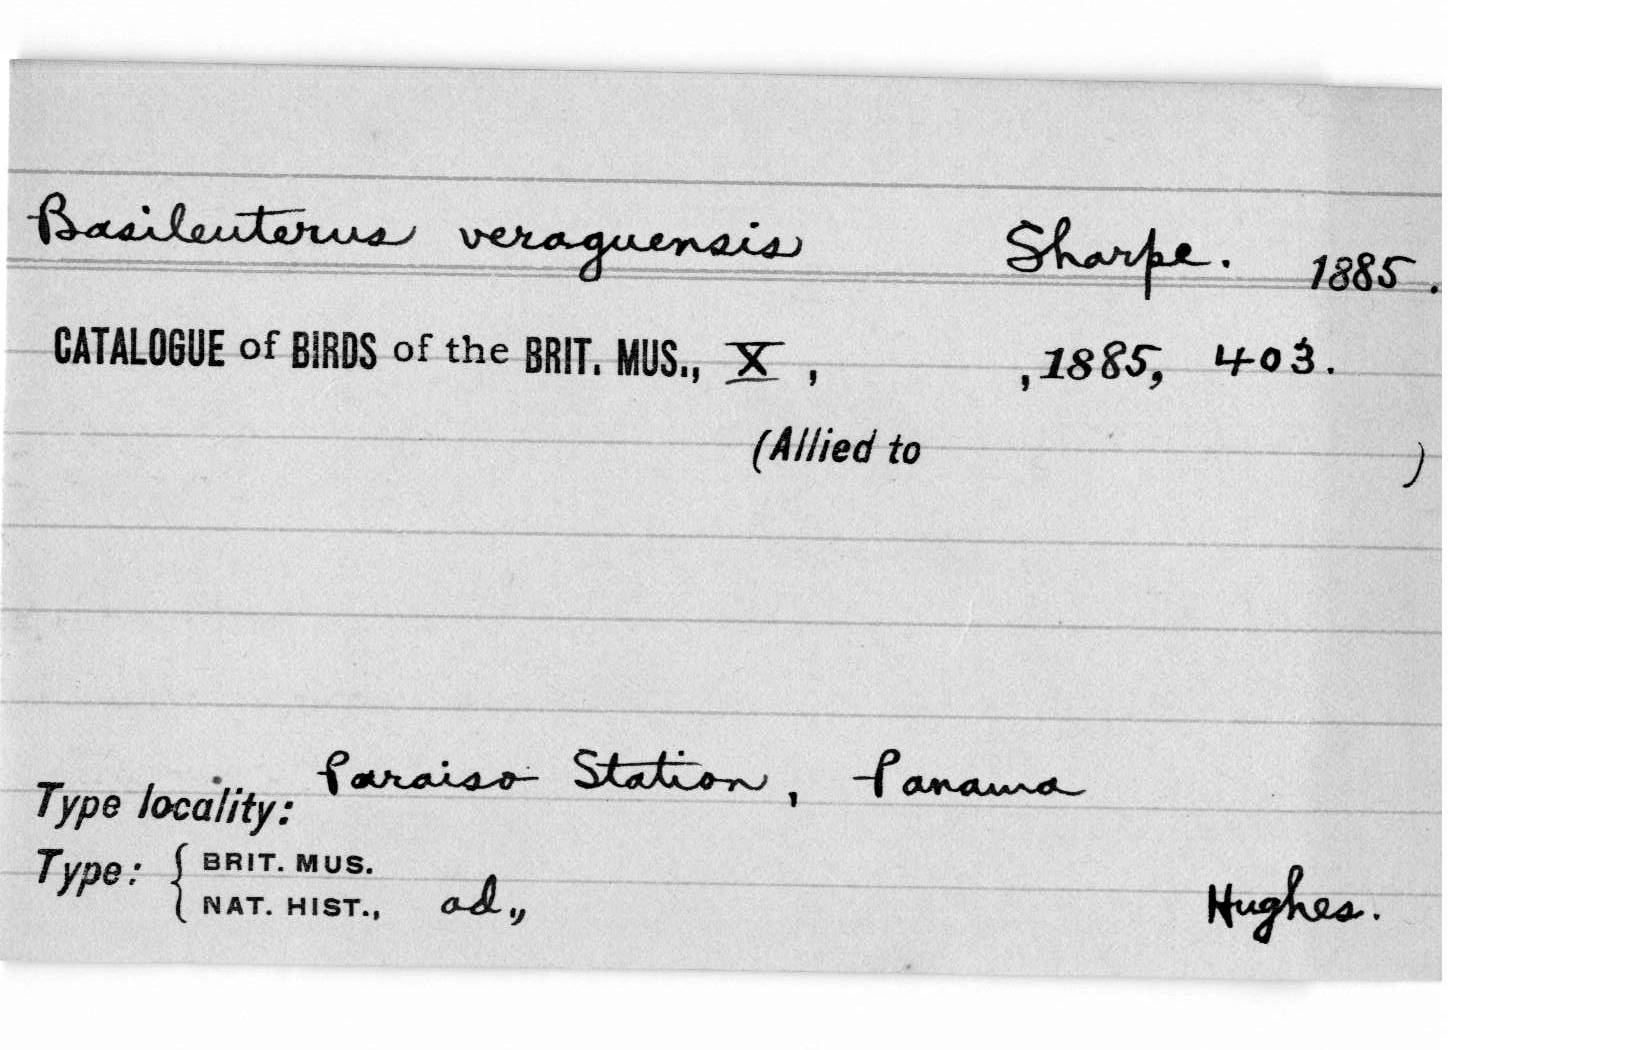 Basileuterus veraguensis Sharpe. 1885.
CATALOGUE of BIRDS of the BRIT. MUS., X, , 1885, 403.
(Allied to )
Type locality: Paraiso Station, Panama
Type: { BRIT. MUS.
NAT. HIST., ad., Hughes.